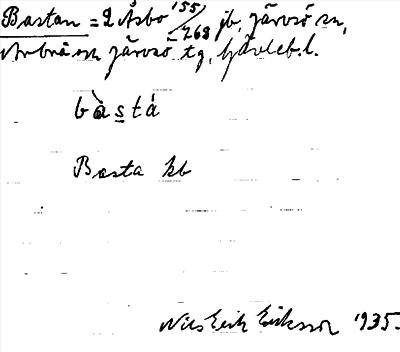 Bastan = 2 Åsbo 155/268 jb, Järvsö sn,
Arbrå sn Järvsö tg, Gävleb. l.
bàstá
Basta kb
Nils Erik Eriksson 1935.